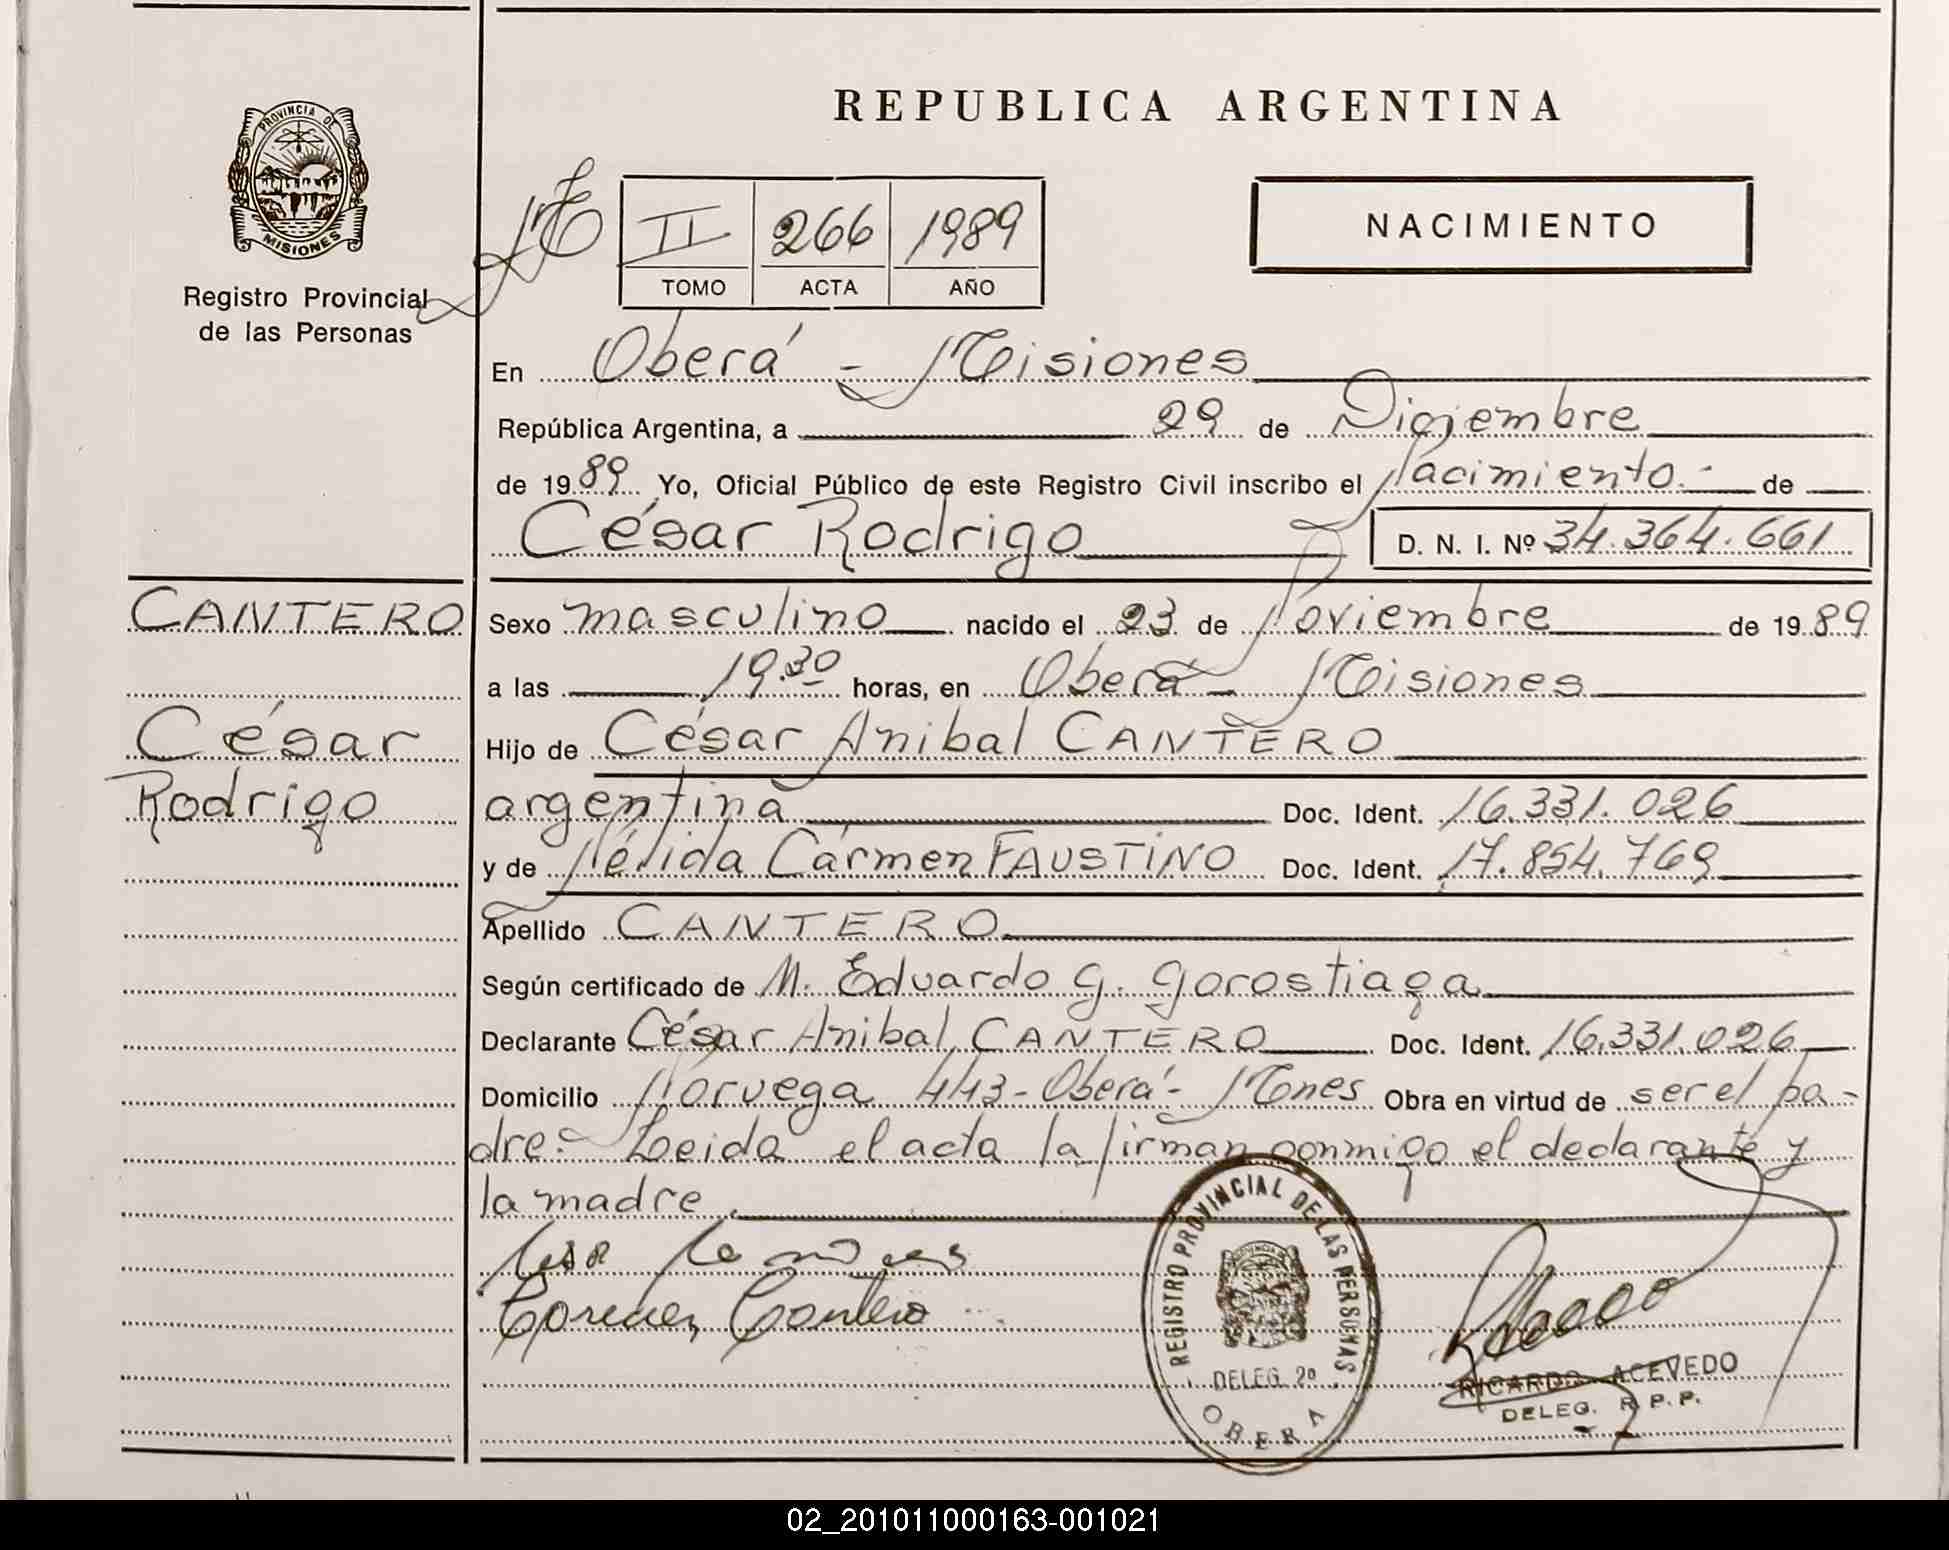 REPUBLICA ARGENTINA
PROVINCIA DE
MISIONES
Registro Provincial
de las Personas
II 266 1989
TOMO ACTA AÑO
NACIMIENTO
En Oberá - Misiones
República Argentina, a 29 de Diciembre
de 1989 Yo, Oficial Público de este Registro Civil inscribo el Nacimiento.- de
César Rodrigo D. N. I. Nº 34.364.661
CANTERO
César
Rodrigo
Sexo masculino nacido el 23 de Noviembre de 1989
a las 19.30 horas, en Oberá - Misiones
Hijo de César Anibal CANTERO
argentina Doc. Ident. 16.331.026
y de Nélida Cármen FAUSTINO Doc. Ident. 17.854.769
Apellido CANTERO
Según certificado de M. Eduardo G. Gorostiaga
Declarante César Anibal CANTERO Doc. Ident. 16.331.026
Domicilio Noruega 443 - Oberá - Mnes Obra en virtud de ser el pa-
dre.- Leida el acta la firman conmigo el declarante y
la madre.
Cantero
REGISTRO PROVINCIAL DE LAS PERSONAS
DELEG. 2º
OBERA
RICARDO ACEVEDO
DELEG. R.P.P.
02_201011000163-001021